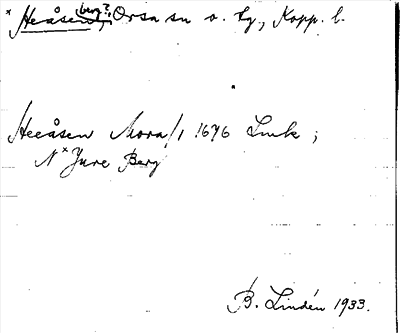 × Heåsen, berg?, Orsa sn o. tg, Kopp. l.
Heeåsen Mora/1 1676 Lmk ;
N × Jure Berg
B. Lindén 1933.